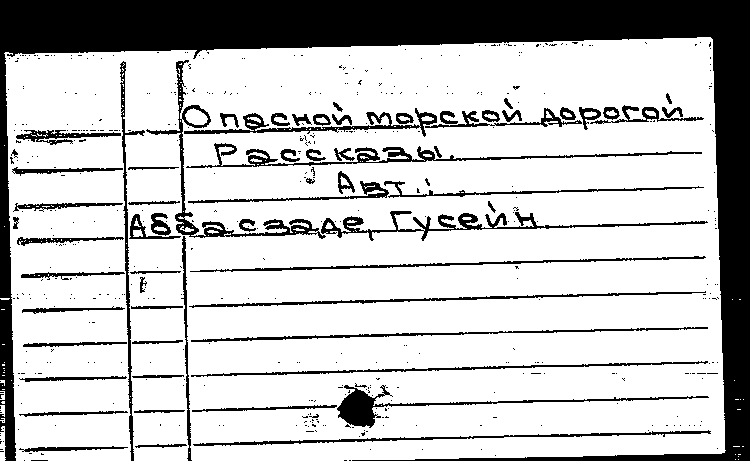 Опасной морской дорогой
Рассказы.
Авт.:
Аббасзаде, Гусейн.